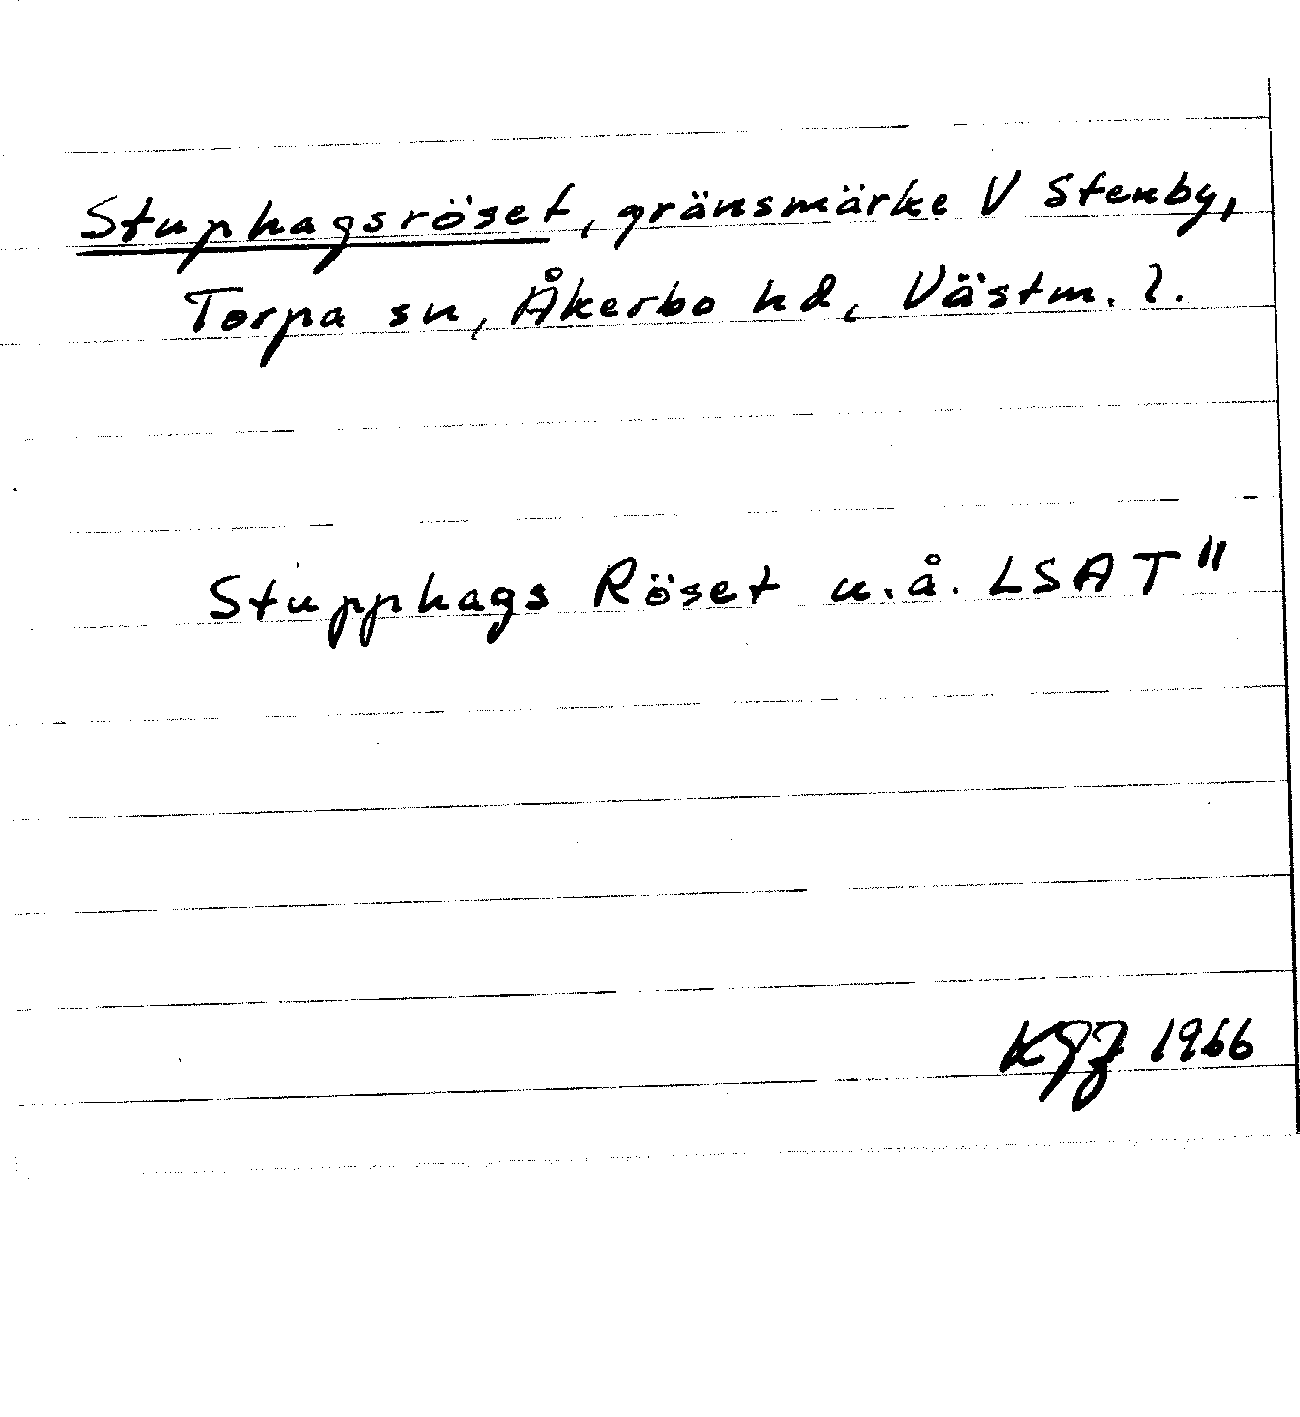 Stuphagsröset, gränsmärke V Stenby,
Torpa sn, Åkerbo hd, Västm. l.
Stupphags Röset u.å. LSA T"
KGJ 1966